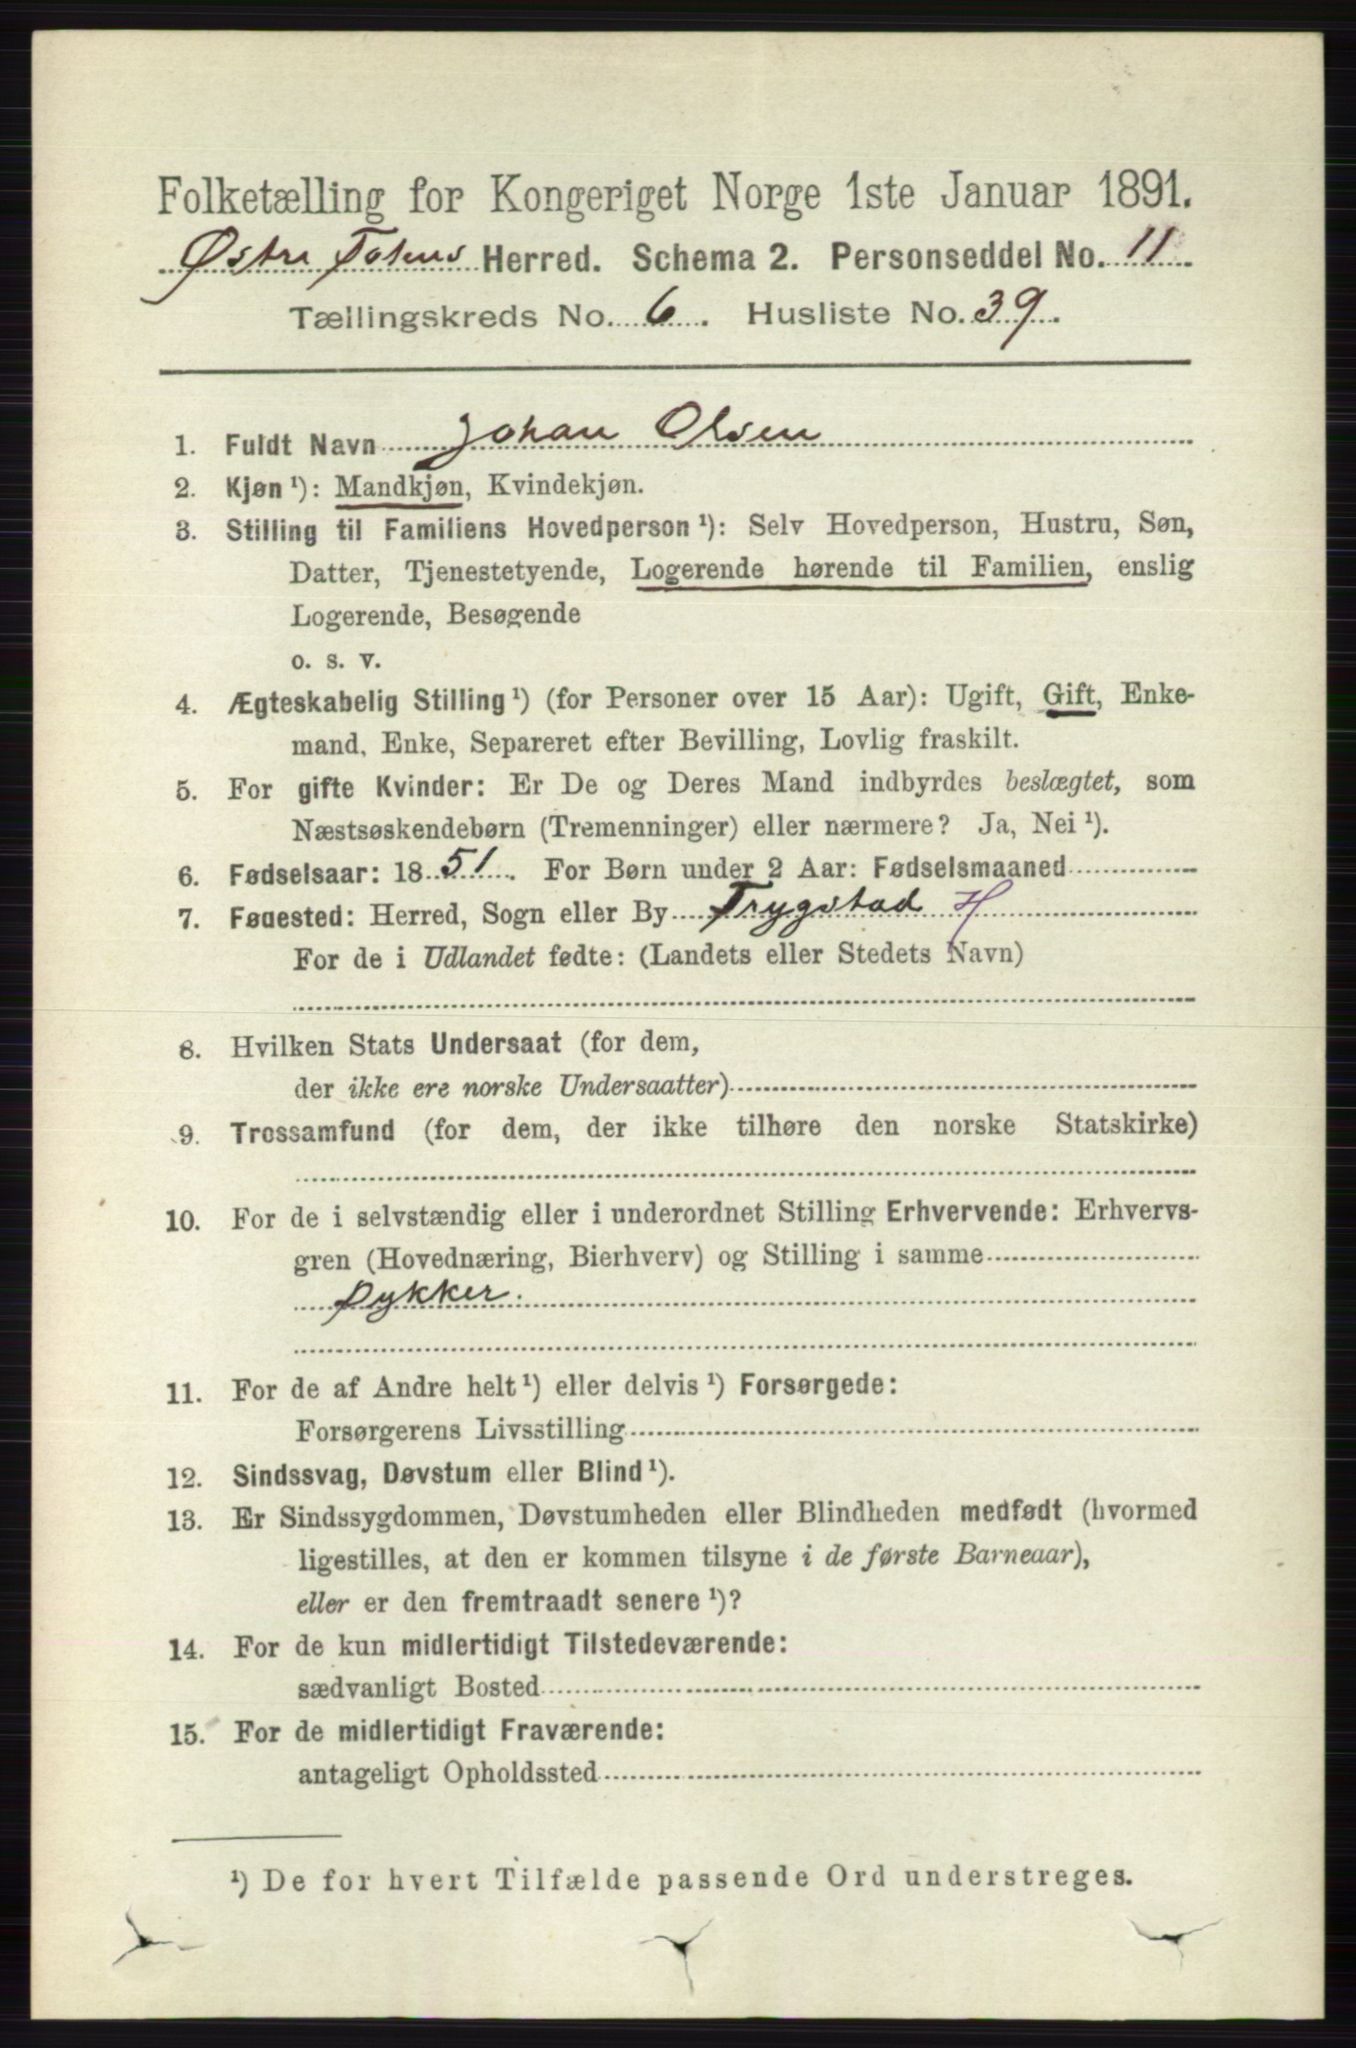 Folketælling for Kongeriget Norge 1ste Januar 1891.
Østre Totens Herred. Schema 2. Personseddel No. 11.
Tællingskreds No. 6. Husliste No. 39.
1. Fuldt Navn Johan Olsen
2. Kjøn ¹): Mandkjøn, Kvindekjøn.
3. Stilling til Familiens Hovedperson ¹): Selv Hovedperson, Hustru, Søn,
Datter, Tjenestetyende, Logerende hørende til Familien, enslig
Logerende, Besøgende
o. s. v.
4. Ægteskabelig Stilling ¹) (for Personer over 15 Aar): Ugift, Gift, Enke-
mand, Enke, Separeret efter Bevilling, Lovlig fraskilt.
5. For gifte Kvinder: Er De og Deres Mand indbyrdes beslægtet, som
Næstsøskendebørn (Tremenninger) eller nærmere? Ja, Nei ¹).
6. Fødselsaar: 1851. For Børn under 2 Aar: Fødselsmaaned
7. Føđested: Herred, Sogn eller By Trygstad H
For de i Udlandet fødte: (Landets eller Stedets Navn)
8. Hvilken Stats Undersaat (for dem,
der ikke ere norske Undersaatter)
9. Trossamfund (for dem, der ikke tilhøre den norske Statskirke)
10. For de i selvstændig eller i underordnet Stilling Erhvervende: Erhvervs-
gren (Hovednæring, Bierhverv) og Stilling i samme
Dykker.
11. For de af Andre helt ¹) eller delvis ¹) Forsørgede:
Forsørgerens Livsstilling
12. Sindssvag, Døvstum eller Blind ¹).
13. Er Sindssygdommen, Døvstumheden eller Blindheden medfødt (hvormed
ligestilles, at den er kommen tilsyne i de første Barneaar),
eller er den fremtraadt senere ¹)?
14. For de kun midlertidigt Tilstedeværende:
sædvanligt Bosted
15. For de midlertidigt Fraværende:
antageligt Opholdssted
¹) De for hvert Tilfælde passende Ord understreges.